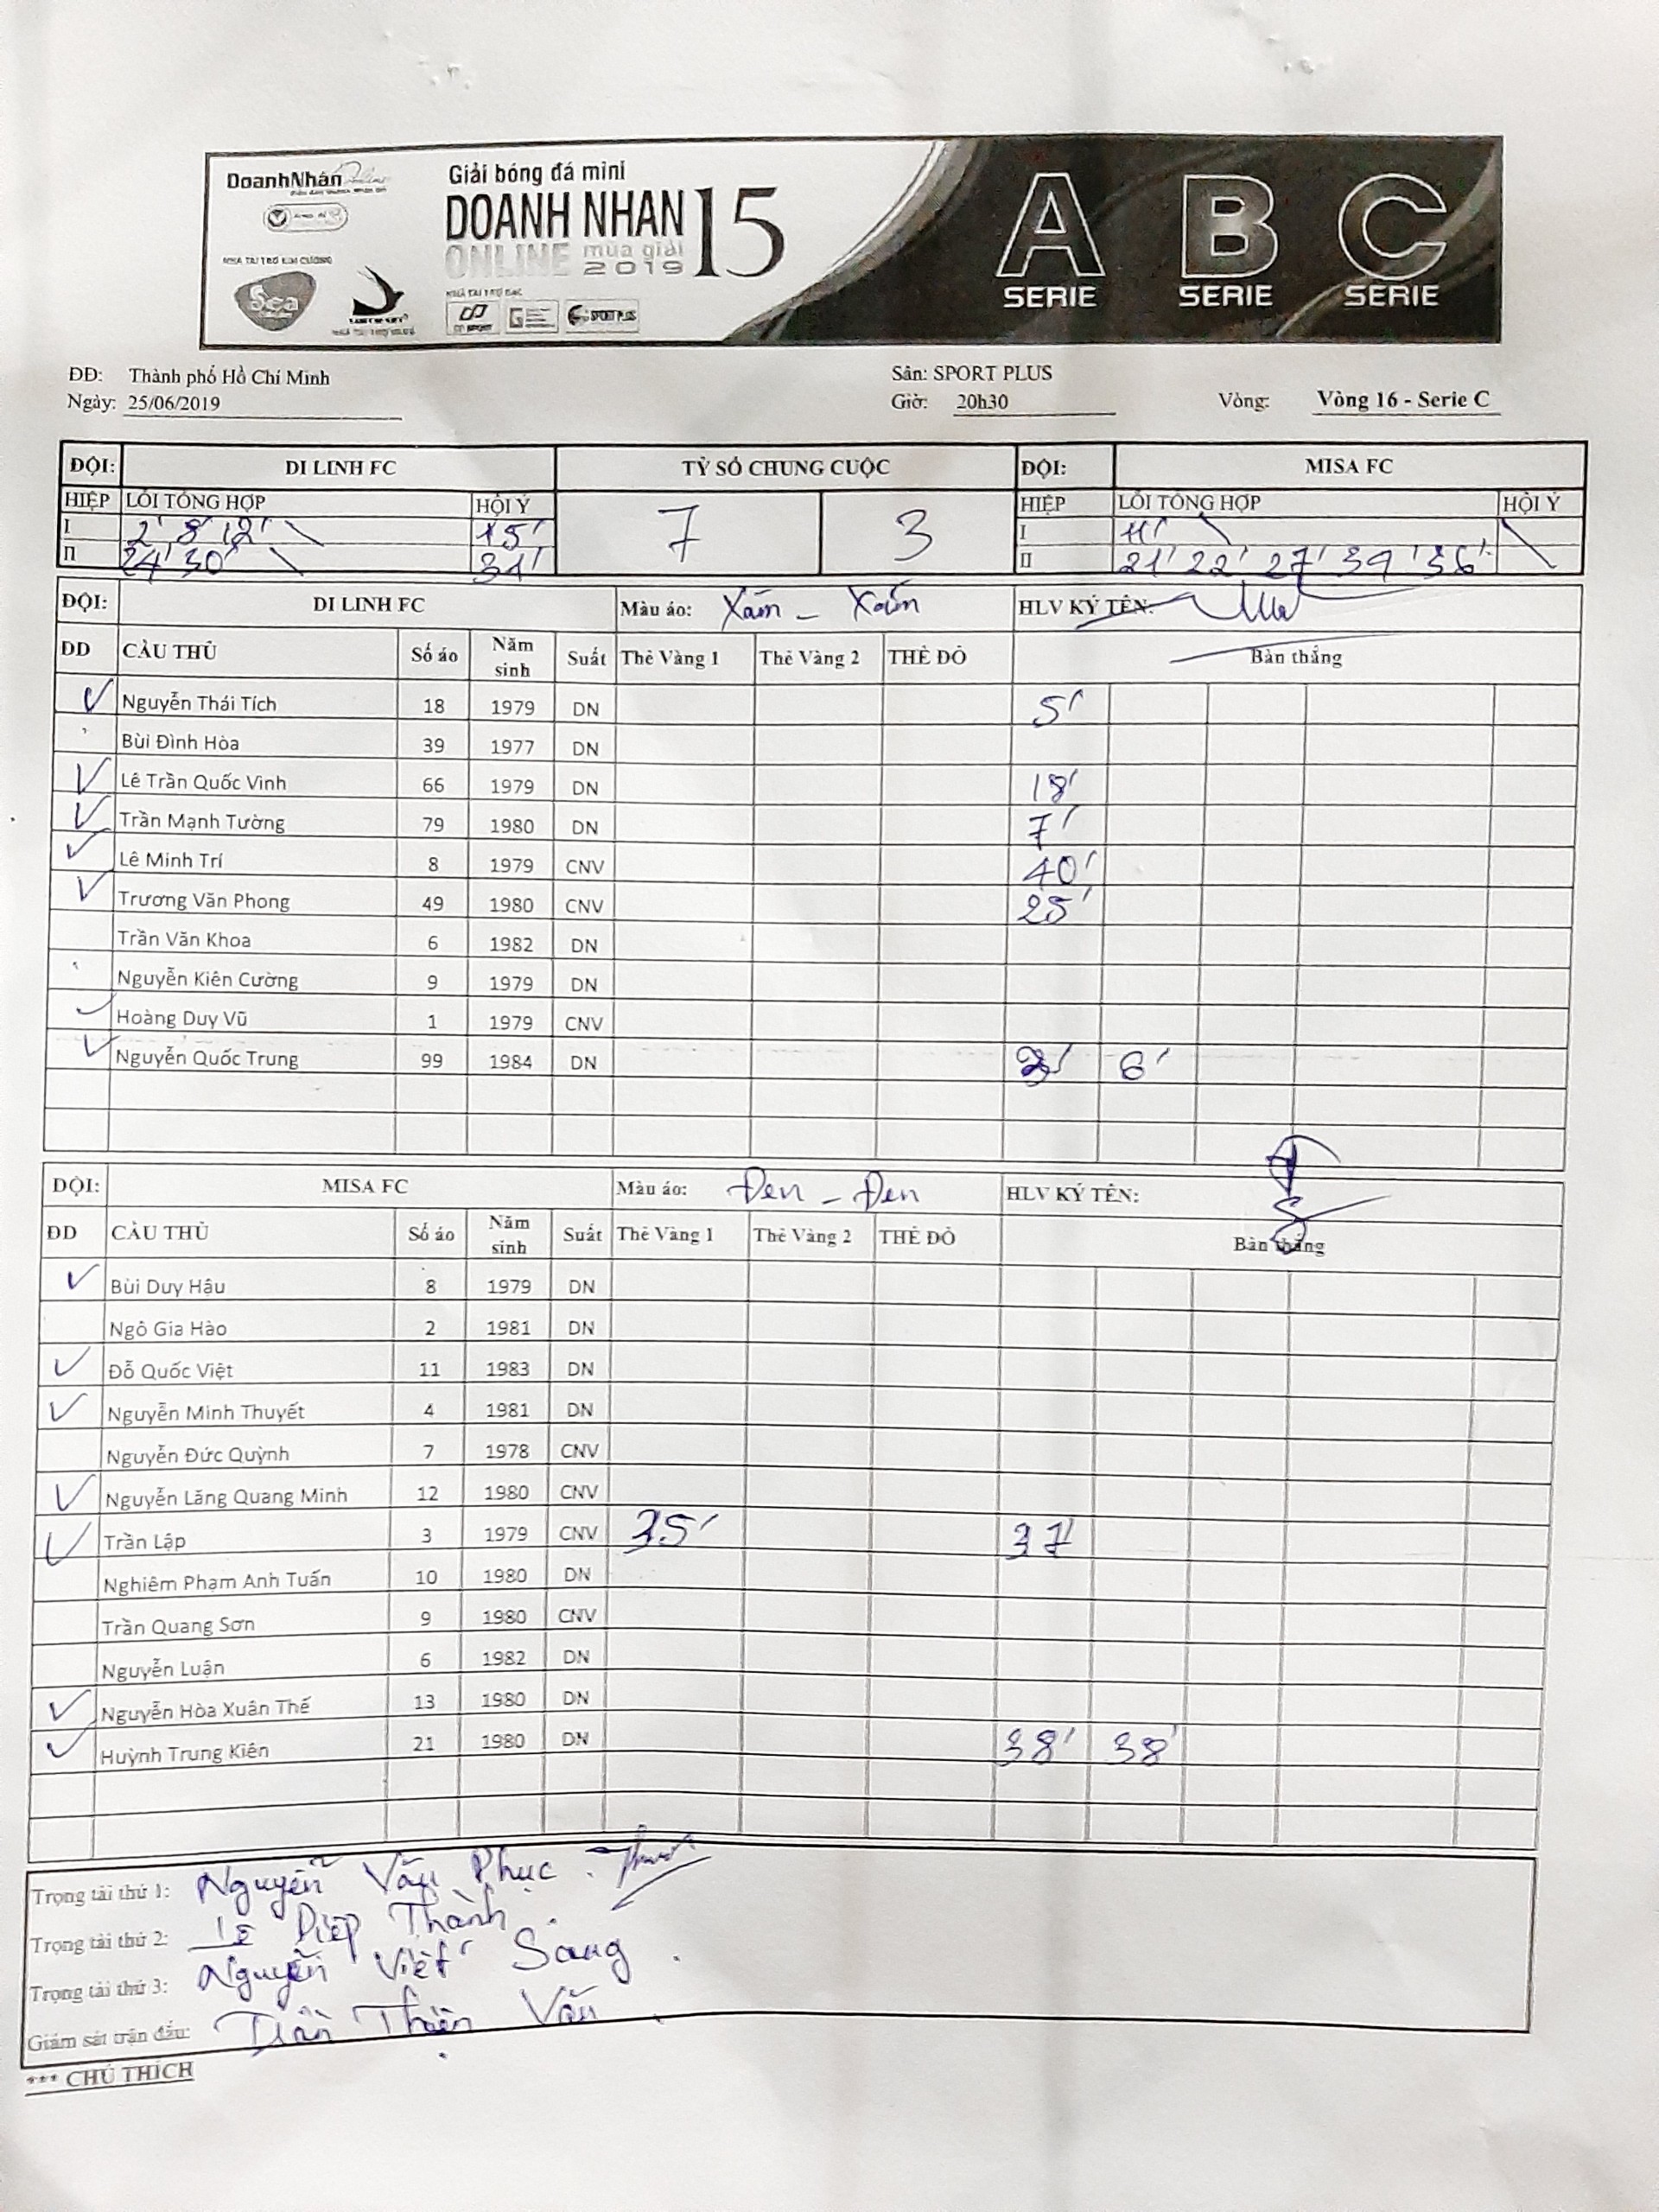 DoanhNhân Online
Giải bóng đá mini
DOANH NHAN 15
ONLINE mùa giải
2019
NHÀ TÀI TRỢ KIM CƯƠNG
Sea
NHÀ TÀI TRỢ BẠC
SPORT PLUS
A B C
SERIE SERIE SERIE
ĐĐ: Thành phố Hồ Chí Minh Sân: SPORT PLUS
Ngày: 25/06/2019 Giờ: 20h30 Vòng: Vòng 16 - Serie C
ĐỘI: DI LINH FC TỶ SỐ CHUNG CUỘC ĐỘI: MISA FC
HIỆP LỖI TỔNG HỢP HỘI Ý 7 3 HIỆP LỖI TỔNG HỢP HỘI Ý
I 2' 8' 12' 15' I 11'
II 24' 30' 31' II 21' 22' 27' 39' 36'
ĐỘI: DI LINH FC Màu áo: Xám - Xám HLV KÝ TÊN:
ĐD CẦU THỦ Số áo Năm sinh Suất Thẻ Vàng 1 Thẻ Vàng 2 THẺ ĐỎ Bàn thắng
Nguyễn Thái Tích 18 1979 DN 5'
Bùi Đình Hòa 39 1977 DN
Lê Trần Quốc Vinh 66 1979 DN 18'
Trần Mạnh Tường 79 1980 DN 7'
Lê Minh Trí 8 1979 CNV 40'
Trương Văn Phong 49 1980 CNV 25'
Trần Văn Khoa 6 1982 DN
Nguyễn Kiên Cường 9 1979 DN
Hoàng Duy Vũ 1 1979 CNV
Nguyễn Quốc Trung 99 1984 DN 6'
ĐỘI: MISA FC Màu áo: Đen - Đen HLV KÝ TÊN:
ĐD CẦU THỦ Số áo Năm sinh Suất Thẻ Vàng 1 Thẻ Vàng 2 THẺ ĐỎ Bàn thắng
Bùi Duy Hậu 8 1979 DN
Ngô Gia Hào 2 1981 DN
Đỗ Quốc Việt 11 1983 DN
Nguyễn Minh Thuyết 4 1981 DN
Nguyễn Đức Quỳnh 7 1978 CNV
Nguyễn Lăng Quang Minh 12 1980 CNV
Trần Lập 3 1979 CNV 35' 37'
Nghiêm Phạm Anh Tuấn 10 1980 DN
Trần Quang Sơn 9 1980 CNV
Nguyễn Luận 6 1982 DN
Nguyễn Hòa Xuân Thế 13 1980 DN
Huỳnh Trung Kiên 21 1980 DN 38' 38'
Trọng tài thứ 1: Nguyễn Văn Phục
Trọng tài thứ 2: Lê Diệp Thành
Trọng tài thứ 3: Nguyễn Viết Sang
Giám sát trận đấu: Trần Thiện Văn
*** CHÚ THÍCH